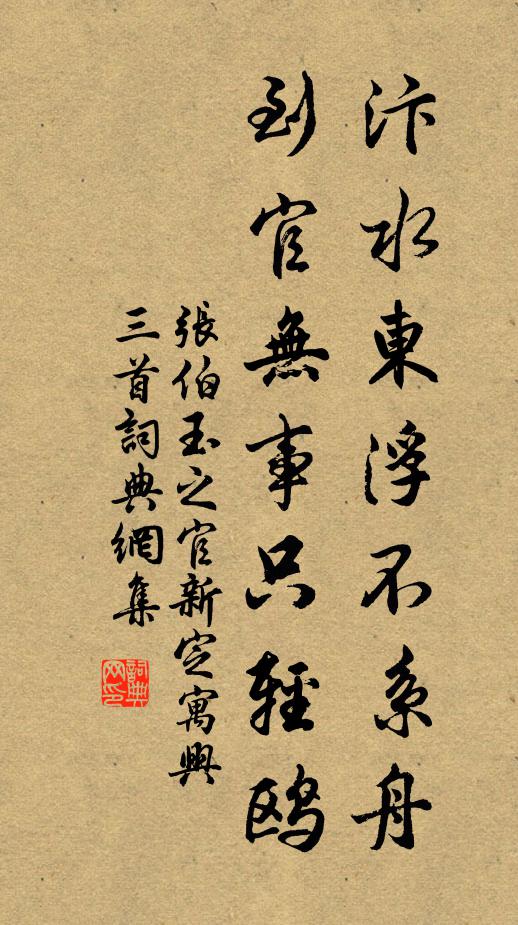 汴水東浮不系舟
到官無事只輕鷗
張伯玉之官新定寓興
三首詞典網集
詞典
网印